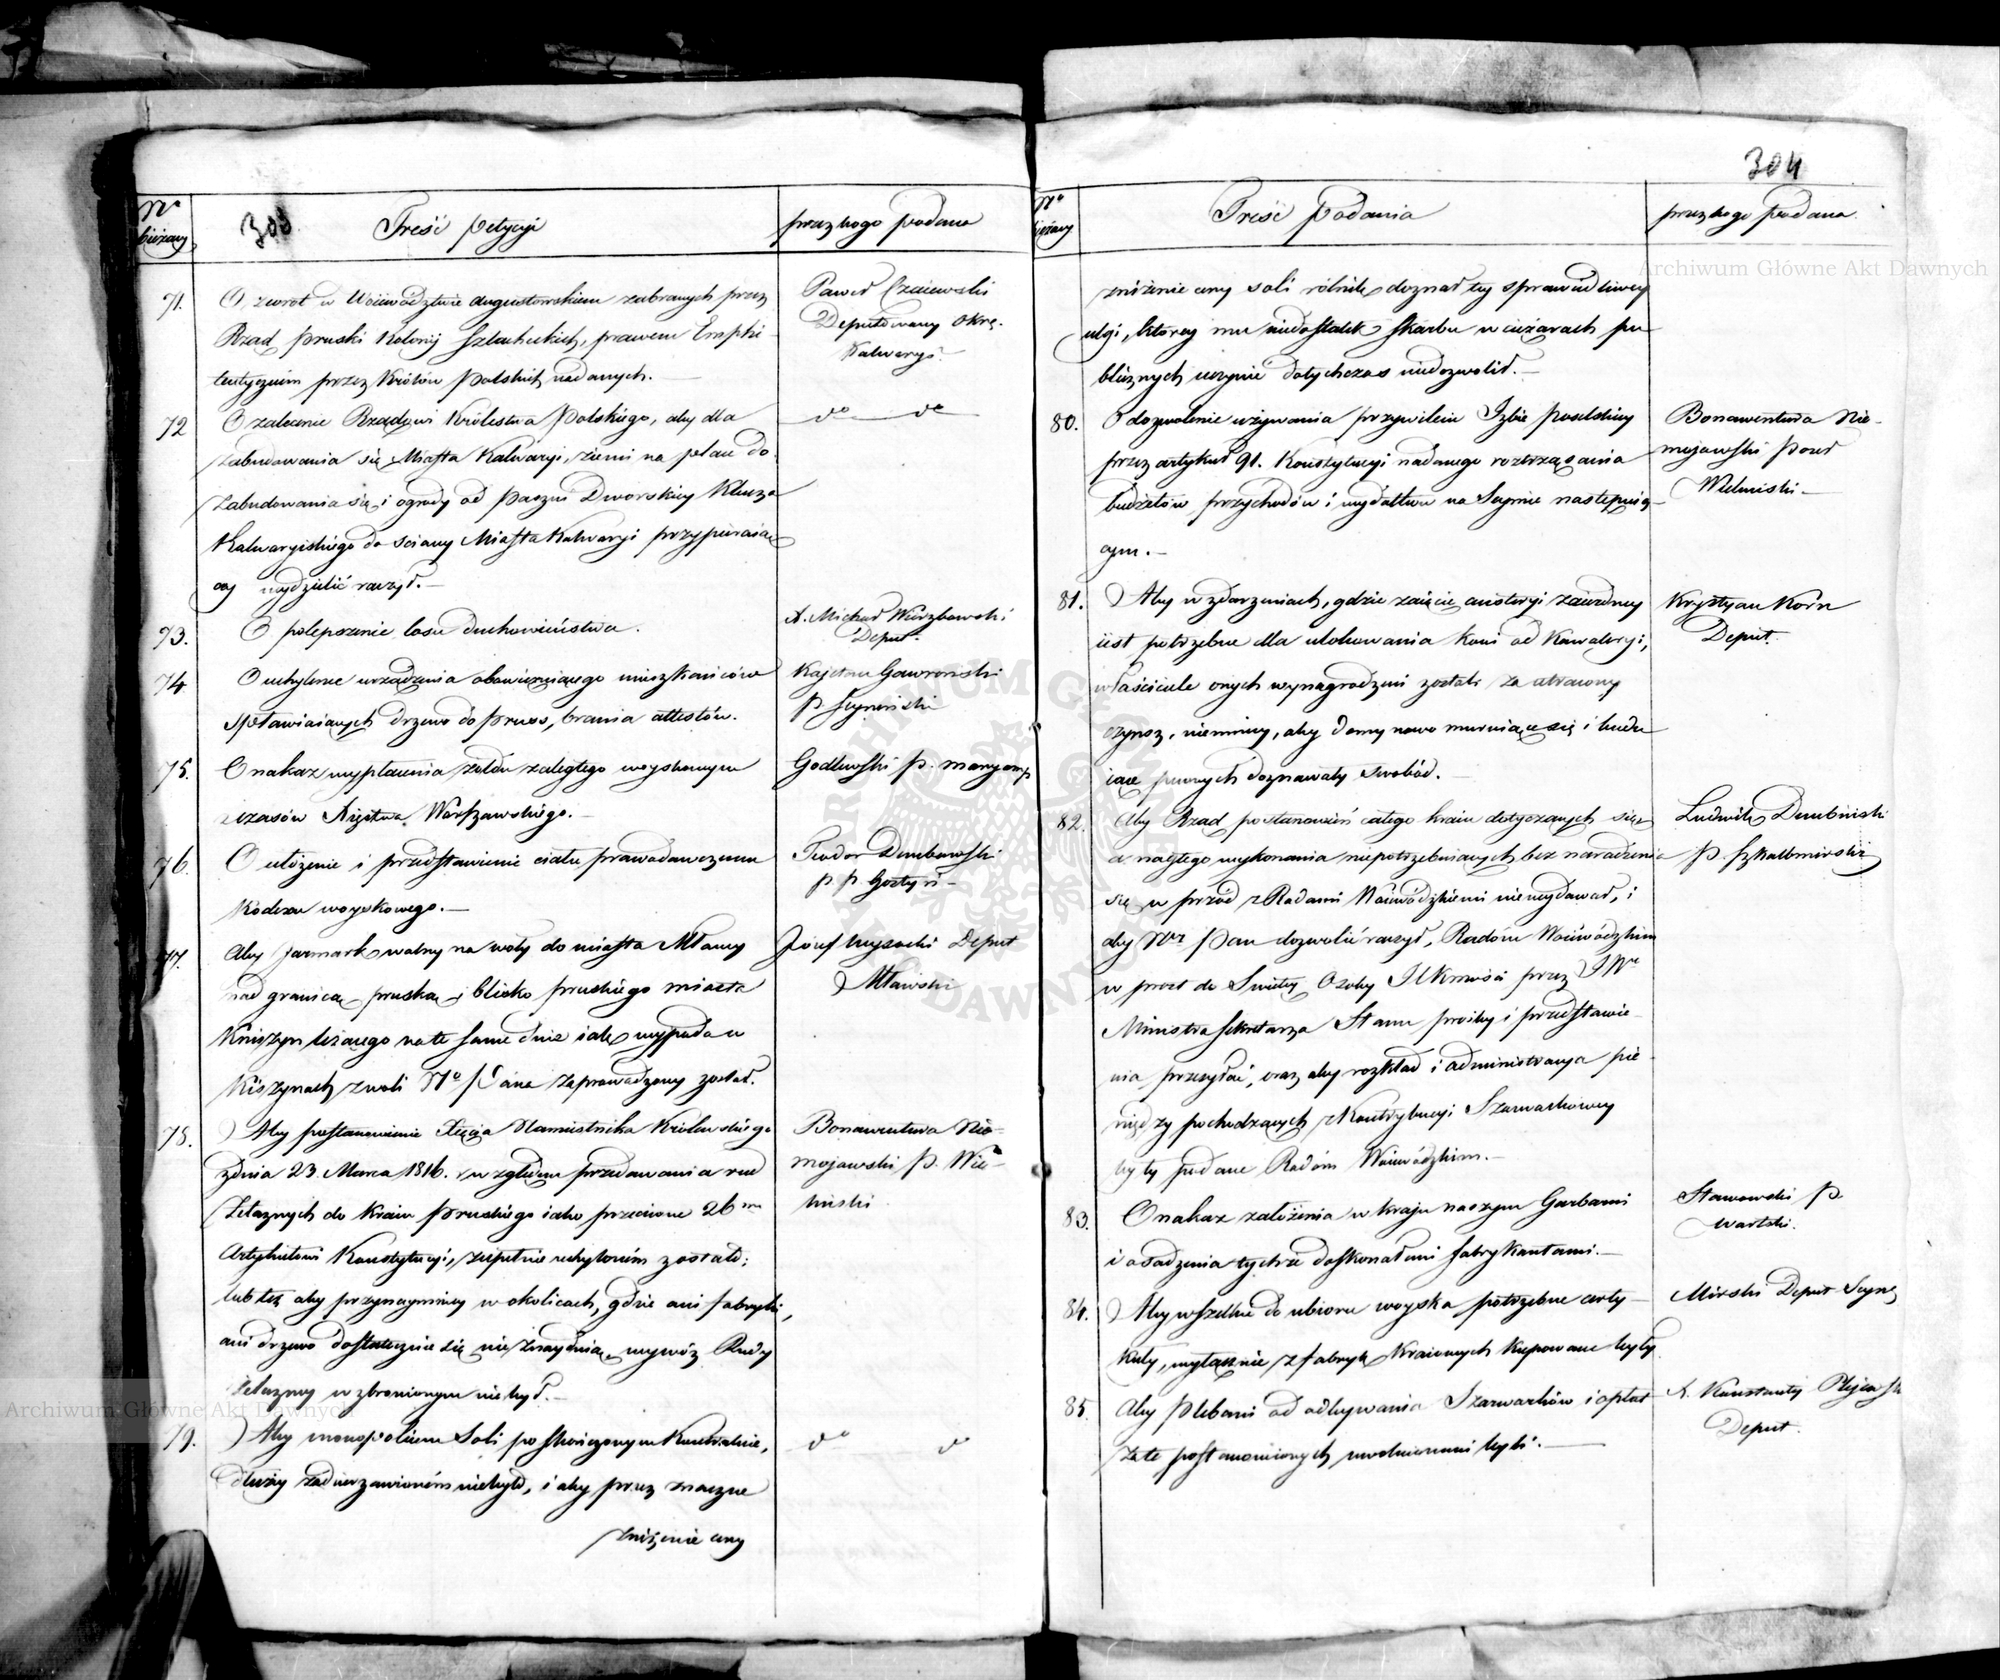 303
No bieżący
Treść petycyi
przez kogo podane
71.
O zwrot w Woiewództwie augustowskiem zabranych przez
Rząd pruski Kolonij szlacheckich, prawem Emphi-
teutycznem przez Królów Polskich nadanych. —
Paweł Czaiewski
Deputowany Okrę.
Kalwaryi.
72
O zalecenie Rządowi Królestwa Polskiego, aby dla
zabudowania się Miasta Kalwaryi, ziemi na place do
zabudowania się i ogrody od Paszni Dworskiey Klucza
Kalwaryiskiego do sciany Miasta Kalwaryi przypieraią
cey wydzielić raczył. —
do do
73.
O polepszenie losu Duchowieństwa.
X. Michał Wierzbowski
Deput.
74
O uchylenie urządzenia obowiązuiącego mieszkańców
spławiaiących drzewo do Pruss, brania attestów.
Kajetan Gawroński
P. Seyneński
75.
O nakaz wypłacenia żołdu zaległego woyskowym
z czasów Xięstwa Warszawskiego. —
Godlewski P. maryamp
76.
O ułożenie i przedstawienie ciału prawodawczemu
Kodexu woyskowego. —
Teodor Dembowski
P. P. Gostyń —
77.
Aby jarmark walny na woły do miasta Mławy
nad granicą pruską i blisko pruskiego miasta
leżącego na te same dnie iak wypada w
zwoli No Pana zaprowadzony został.
Józef Wysocki Deput
Mławski
78.
Aby postanowienie Xięcia Namiestnika Królewskiego
z dnia 23. Marca 1816. względem przedawania rud
żelaznych do kraiu Pruskiego iako przeciwne 26m
Artykułowi Konstytucyi, zupełnie uchylonem zostało;
lub też aby przynaymniey w okolicach, gdzie ani fabryki,
ani drzewo dostatecznie się nie znayduią, wywóz Rudy
żelazney wzbronionym nie był. —
Bonawentura Nie-
mojowski P. Wie-
luński
79.
Aby monopolium Soli po skończonym Kontrakcie,
dłużey zadzierzawionem nie było, i aby przez znaczne
zniżenie ceny
do do
304
No bieżący
Treść Podania
przez kogo podana.
zniżenie ceny soli rólnik doznał tey sprawiedliwey
ulgi, którey mu niedostatek skarbu w ciężarach pu
blicznych uczynić dotychczas niedozwolił. —
80.
O dozwolenie używania przywileiu Izbie poselskiey
przez artykuł 91. Konstytucyi nadanego roztrząsania
budżetów przychodów i wydatków na Seymie następuią-
cym. —
Bonawentura Nie-
mojowski Poseł
Wieluński —
81.
Aby w zdarzeniach, gdzie zaięcie austeryi zaiezdney
iest potrzebne dla ulokowania koni od Kawaleryi,
właściciele onych wynagrodzeni zostali za utracony
czynsz, niemniey, aby domy nowo muruiące się i budu
iące pewnych doznawały swobód. —
Krystyan Korn
Deput.
82.
Aby Rząd postanowień całego kraiu dotyczących się
a nagłego wykonania niepotrzebuiących bez naradzenia
się w przód z Radami Woiewódzkiemi niewydawał, i
aby Nr Pan dozwolić raczył, Radom Woiewódzkim
w prost do Świętey Osoby J K mości przez JWo
Ministra Sekretarza Stanu prośby i przedstawie-
nia przesyłać, oraz aby rozkład i administracya pie
niędzy pochodzących z Kontrybucyi Szarwarkowey
były podane Radom Woiewódzkim. —
Ludwik Dembiński
P. Szkalbmirski
83.
O nakaz założenia w kraju naszym Garbarni
i osadzenia tychże doskonałemi fabrykantami. —
Stawowski P.
Wartski.
84.
Aby wszelkie do ubioru woyska potrzebne arty-
kuły, wyłącznie z fabryk Kraiowych kupowane były
Mirski Deput Seyne
85.
Aby Plebani od odbywania Szarwarków i opłat
za te postanowionych uwolnionemi byli. —
X. Konstanty
Deput.
Archiwum Główne Akt Dawnych
Archiwum Główne Akt Dawnych
ARCHIWUM GŁÓWNE AKT DAWNYCH